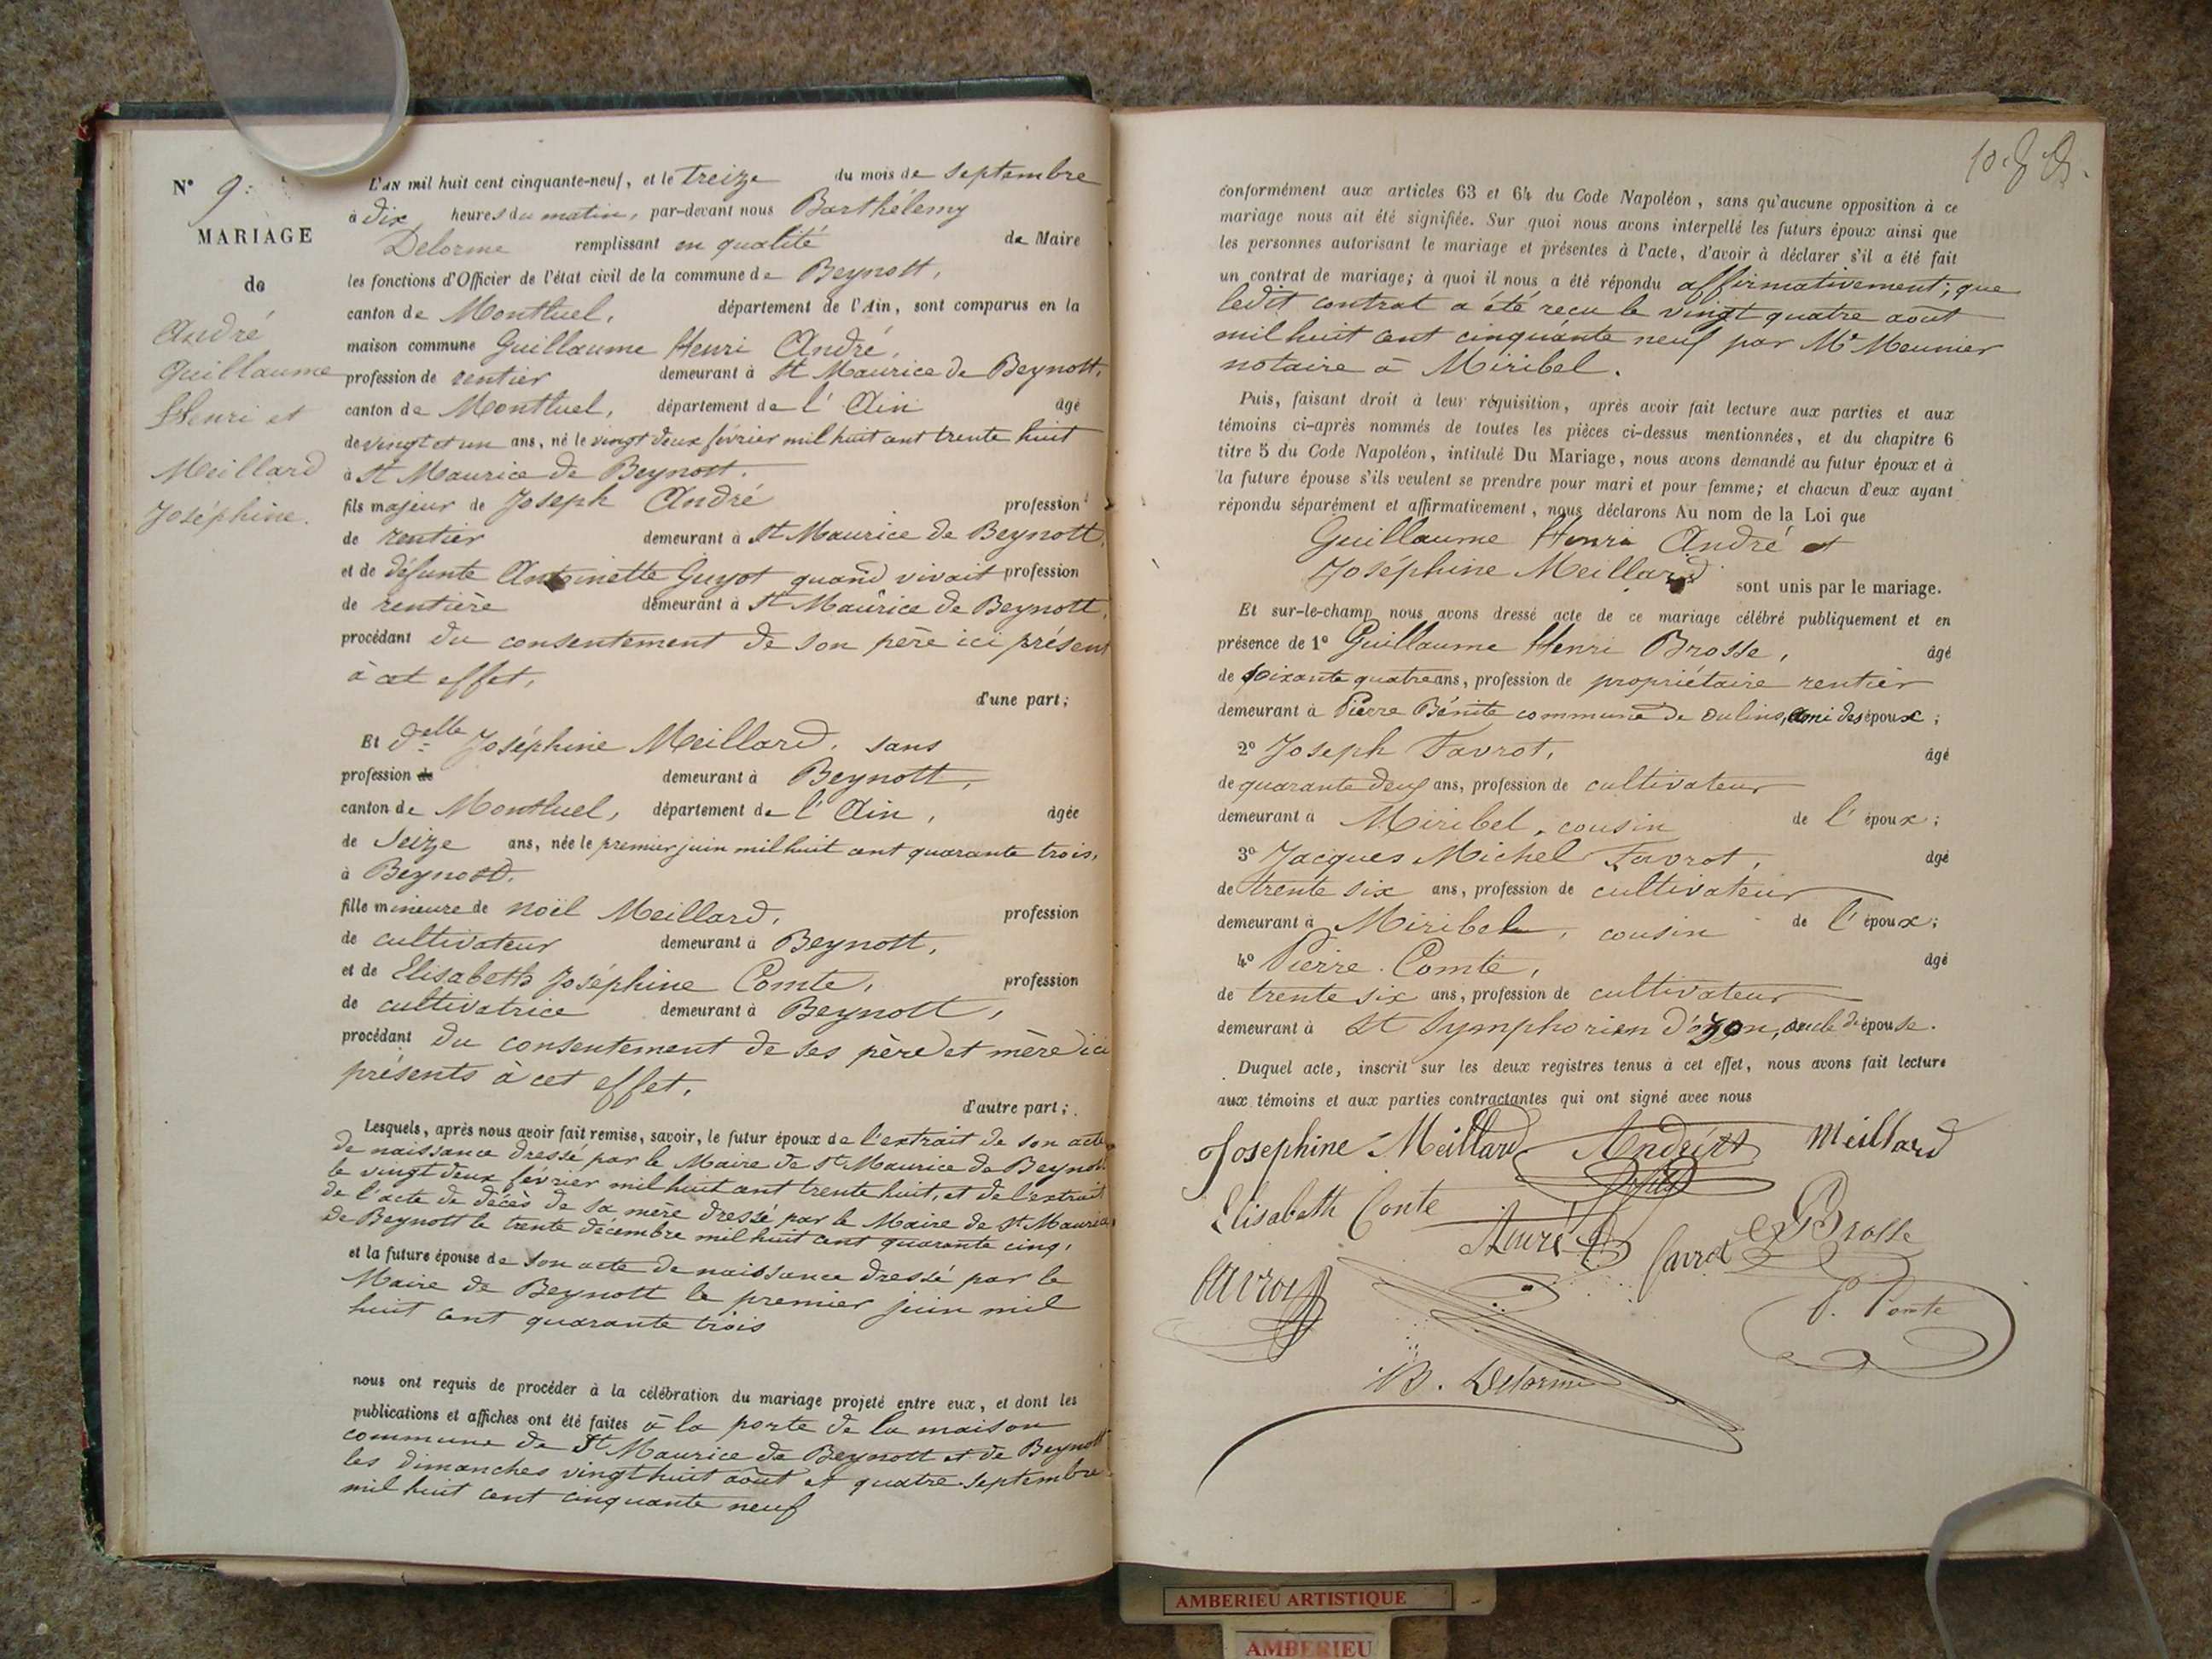 N° 9.
MARIAGE
de
André
Guillaume
Henri et
Meillard
Joséphine.
L'AN mil huit cent cinquante-neuf, et le treize du mois de septembre
à dix heures du matin, par-devant nous Barthélemy
Delorme remplissant en qualité de Maire
les fonctions d'Officier de l'état civil de la commune de Beynost,
canton de Montluel, département de l'Ain, sont comparus en la
maison commune Guillaume Henri André,
profession de rentier demeurant à St Maurice de Beynost,
canton de Montluel, département de l'Ain âgé
de vingt et un ans, né le vingt deux février mil huit cent trente huit
à St Maurice de Beynost.
fils majeur de Joseph André profession
de rentier demeurant à St Maurice de Beynost,
et de défunte Antoinette Guyot quand vivait profession
de rentière demeurant à St Maurice de Beynost,
procédant du consentement de son père ici présent
à cet effet,
d'une part;
Et delle Joséphine Meillard, sans
profession de demeurant à Beynost,
canton de Montluel, département de l'Ain, âgée
de seize ans, née le premier juin mil huit cent quarante trois,
à Beynost.
fille mineure de noël Meillard, profession
de cultivateur demeurant à Beynost,
et de Elisabeth Joséphine Comte, profession
de cultivatrice demeurant à Beynost,
procédant du consentement de ses père et mère ici
présents à cet effet,
d'autre part;
Lesquels, après nous avoir fait remise, savoir, le futur époux de l'extrait de son acte
de naissance dressé par le Maire de St Maurice de Beynost
le vingt deux février mil huit cent trente huit, et de l'extrait
de l'acte de décès de sa mère dressé par le Maire de St Maurice
de Beynost le trente décembre mil huit cent quarante cinq,
et la future épouse de son acte de naissance dressé par le
Maire de Beynost le premier juin mil
huit cent quarante trois
nous ont requis de procéder à la célébration du mariage projeté entre eux, et dont les
publications et affiches ont été faites à la porte de la maison
commune de St Maurice de Beynost et de Beynost
les dimanches vingt huit août et quatre septembre
mil huit cent cinquante neuf
conformément aux articles 63 et 64 du Code Napoléon, sans qu'aucune opposition à ce
mariage nous ait été signifiée. Sur quoi nous avons interpellé les futurs époux ainsi que
les personnes autorisant le mariage et présentes à l'acte, d'avoir à déclarer s'il a été fait
un contrat de mariage; à quoi il nous a été répondu affirmativement; que
ledit contrat a été reçu le vingt quatre août
mil huit cent cinquante neuf par Me Meunier
notaire à Miribel.
Puis, faisant droit à leur réquisition, après avoir fait lecture aux parties et aux
témoins ci-après nommés de toutes les pièces ci-dessus mentionnées, et du chapitre 6
titre 5 du Code Napoléon, intitulé Du Mariage, nous avons demandé au futur époux et à
la future épouse s'ils veulent se prendre pour mari et pour femme; et chacun d'eux ayant
répondu séparément et affirmativement, nous déclarons Au nom de la Loi que
Guillaume Henri André et
Joséphine Meillard sont unis par le mariage.
Et sur-le-champ nous avons dressé acte de ce mariage célébré publiquement et en
présence de 1° Guillaume Henri Brosse, âgé
de soixante quatre ans, profession de propriétaire rentier
demeurant à Pierre Bénite commune de Oulins, ami des époux;
2° Joseph Favrot, âgé
de quarante deux ans, profession de cultivateur
demeurant à Miribel, cousin de l'époux;
3° Jacques Michel Favrot, âgé
de trente six ans, profession de cultivateur
demeurant à Miribel, cousin de l'époux;
4° Pierre Comte, âgé
de trente six ans, profession de cultivateur
demeurant à St Symphorien d'ozon, oncle de épouse.
Duquel acte, inscrit sur les deux registres tenus à cet effet, nous avons fait lecture
aux témoins et aux parties contractantes qui ont signé avec nous
Josephine Meillard André Meillard
Elisabeth Conte
André Favrot Brosse
Favrot
P. Comte
B. Delorme
AMBERIEU ARTISTIQUE
AMBERIEU